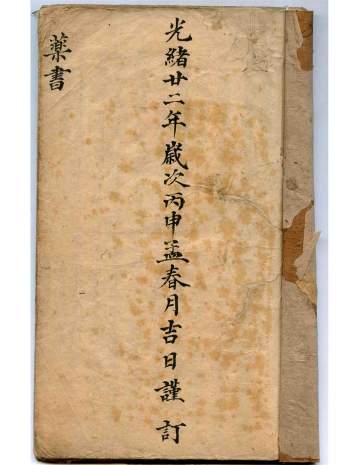 光緒廿二年嵗次丙申孟春月吉日謹訂
藥書